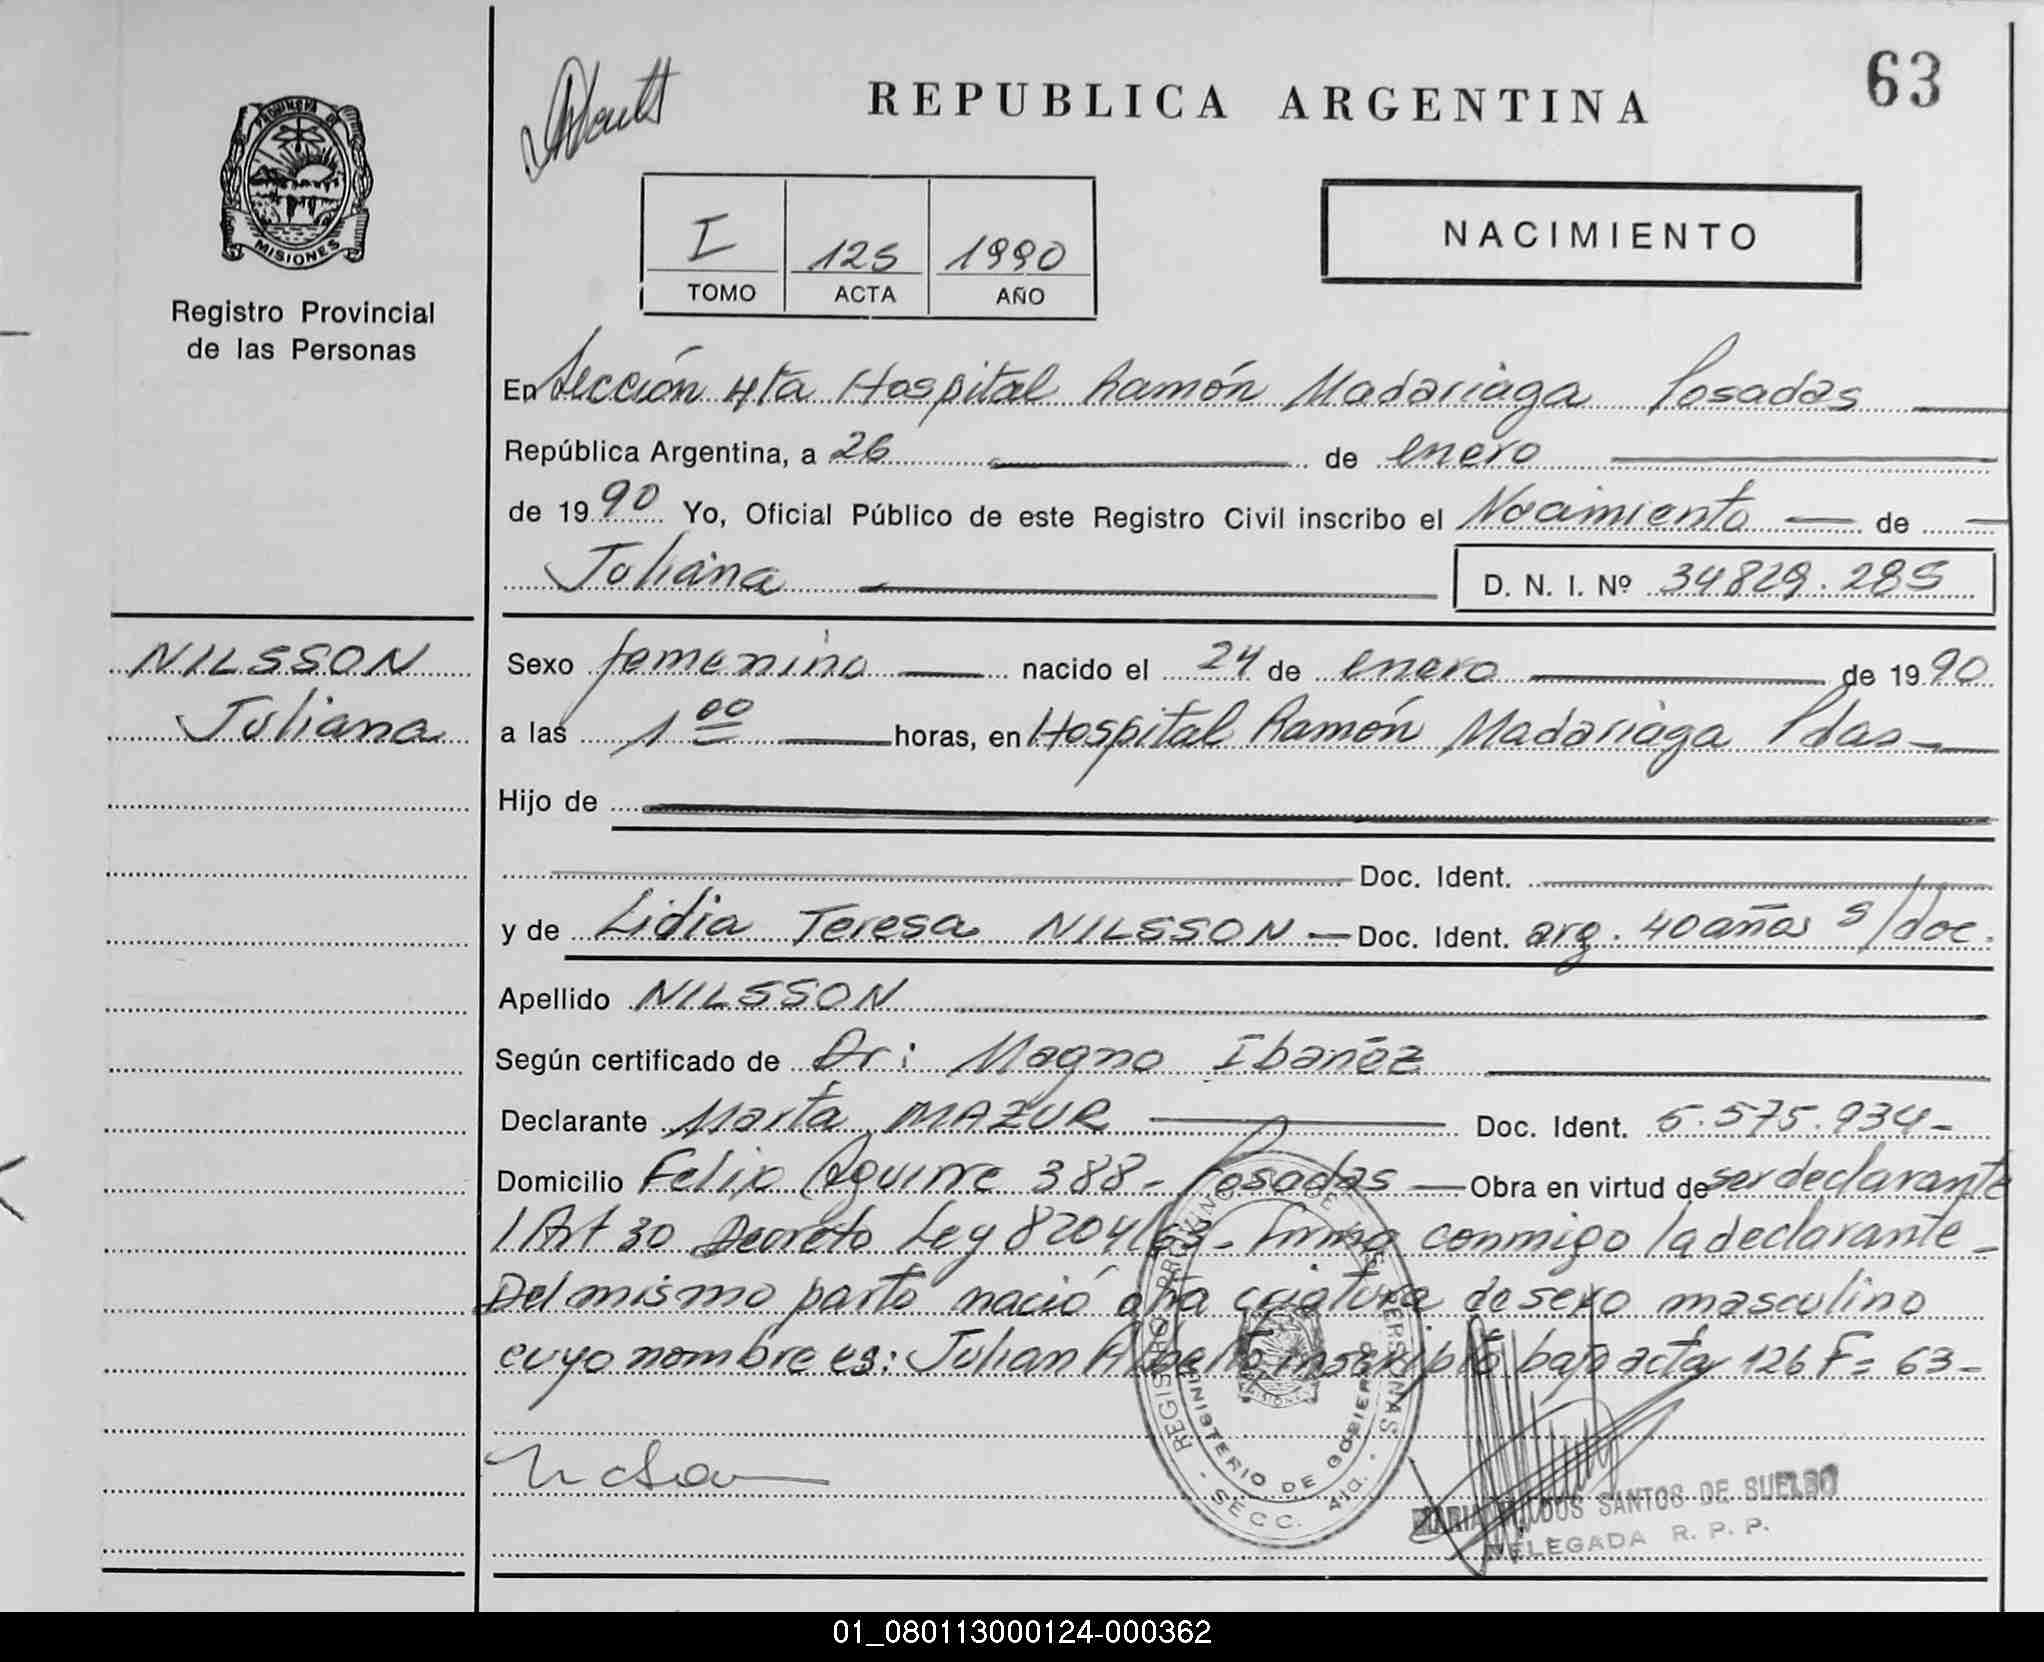 63
REPUBLICA ARGENTINA
PROVINCIA DE
MISIONES
Registro Provincial
de las Personas
I 125 1990
TOMO ACTA AÑO
NACIMIENTO
En Sección 4ta Hospital Ramón Madariaga Posadas
República Argentina, a 26 de enero
de 1990 Yo, Oficial Público de este Registro Civil inscribo el Nacimiento de
Juliana D. N. I. Nº 34829.285
NILSSON
Juliana
Sexo femenino nacido el 24 de enero de 1990
a las 1 00 horas, en Hospital Ramón Madariaga Pdas
Hijo de
Doc. Ident.
y de Lidia Teresa NILSSON Doc. Ident. arg. 40 años s/doc.
Apellido NILSSON
Según certificado de Dr: Magno Ibañez
Declarante Marta MAZUR Doc. Ident. 6.575.934-
Domicilio Felix Aguirre 388- Posadas Obra en virtud de ser declarante
/Art 30 Decreto Ley 8204/63- Firma conmigo la declarante-
Del mismo parto nació otra criatura de sexo masculino
cuyo nombre es: Julian Alberto inscripto bajo acta 126 F= 63-
REGISTRO PROVINCIAL DE LAS PERSONAS
MINISTERIO DE GOBIERNO
SECC. 4ta.
MARIA DOS SANTOS DE SUELDO
DELEGADA R. P. P.
01_080113000124-000362